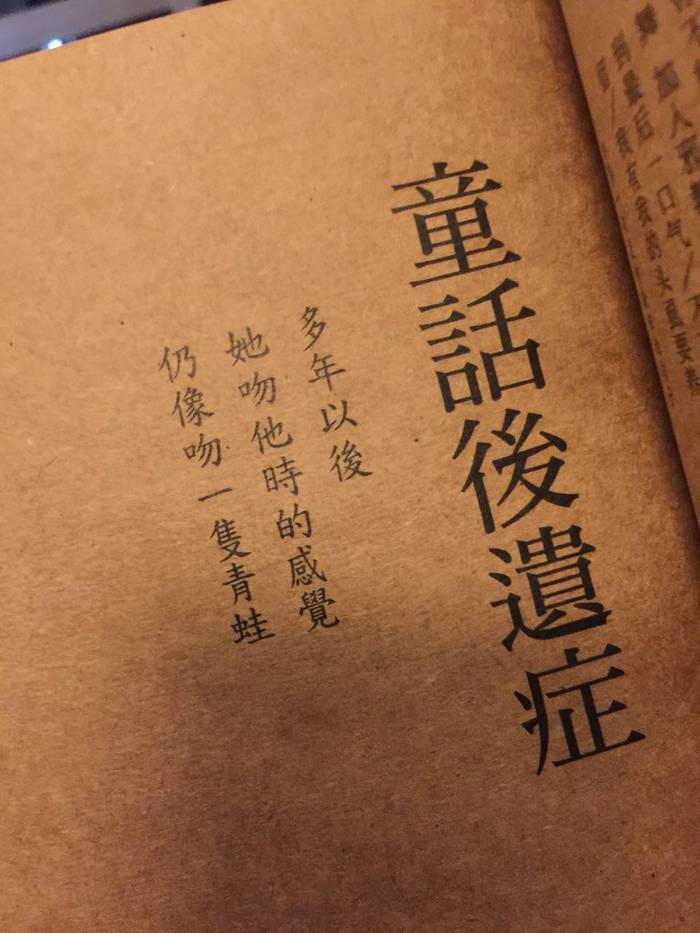 童話後遺症
多年以後
她吻他時的感覺
仍像吻一隻青蛙